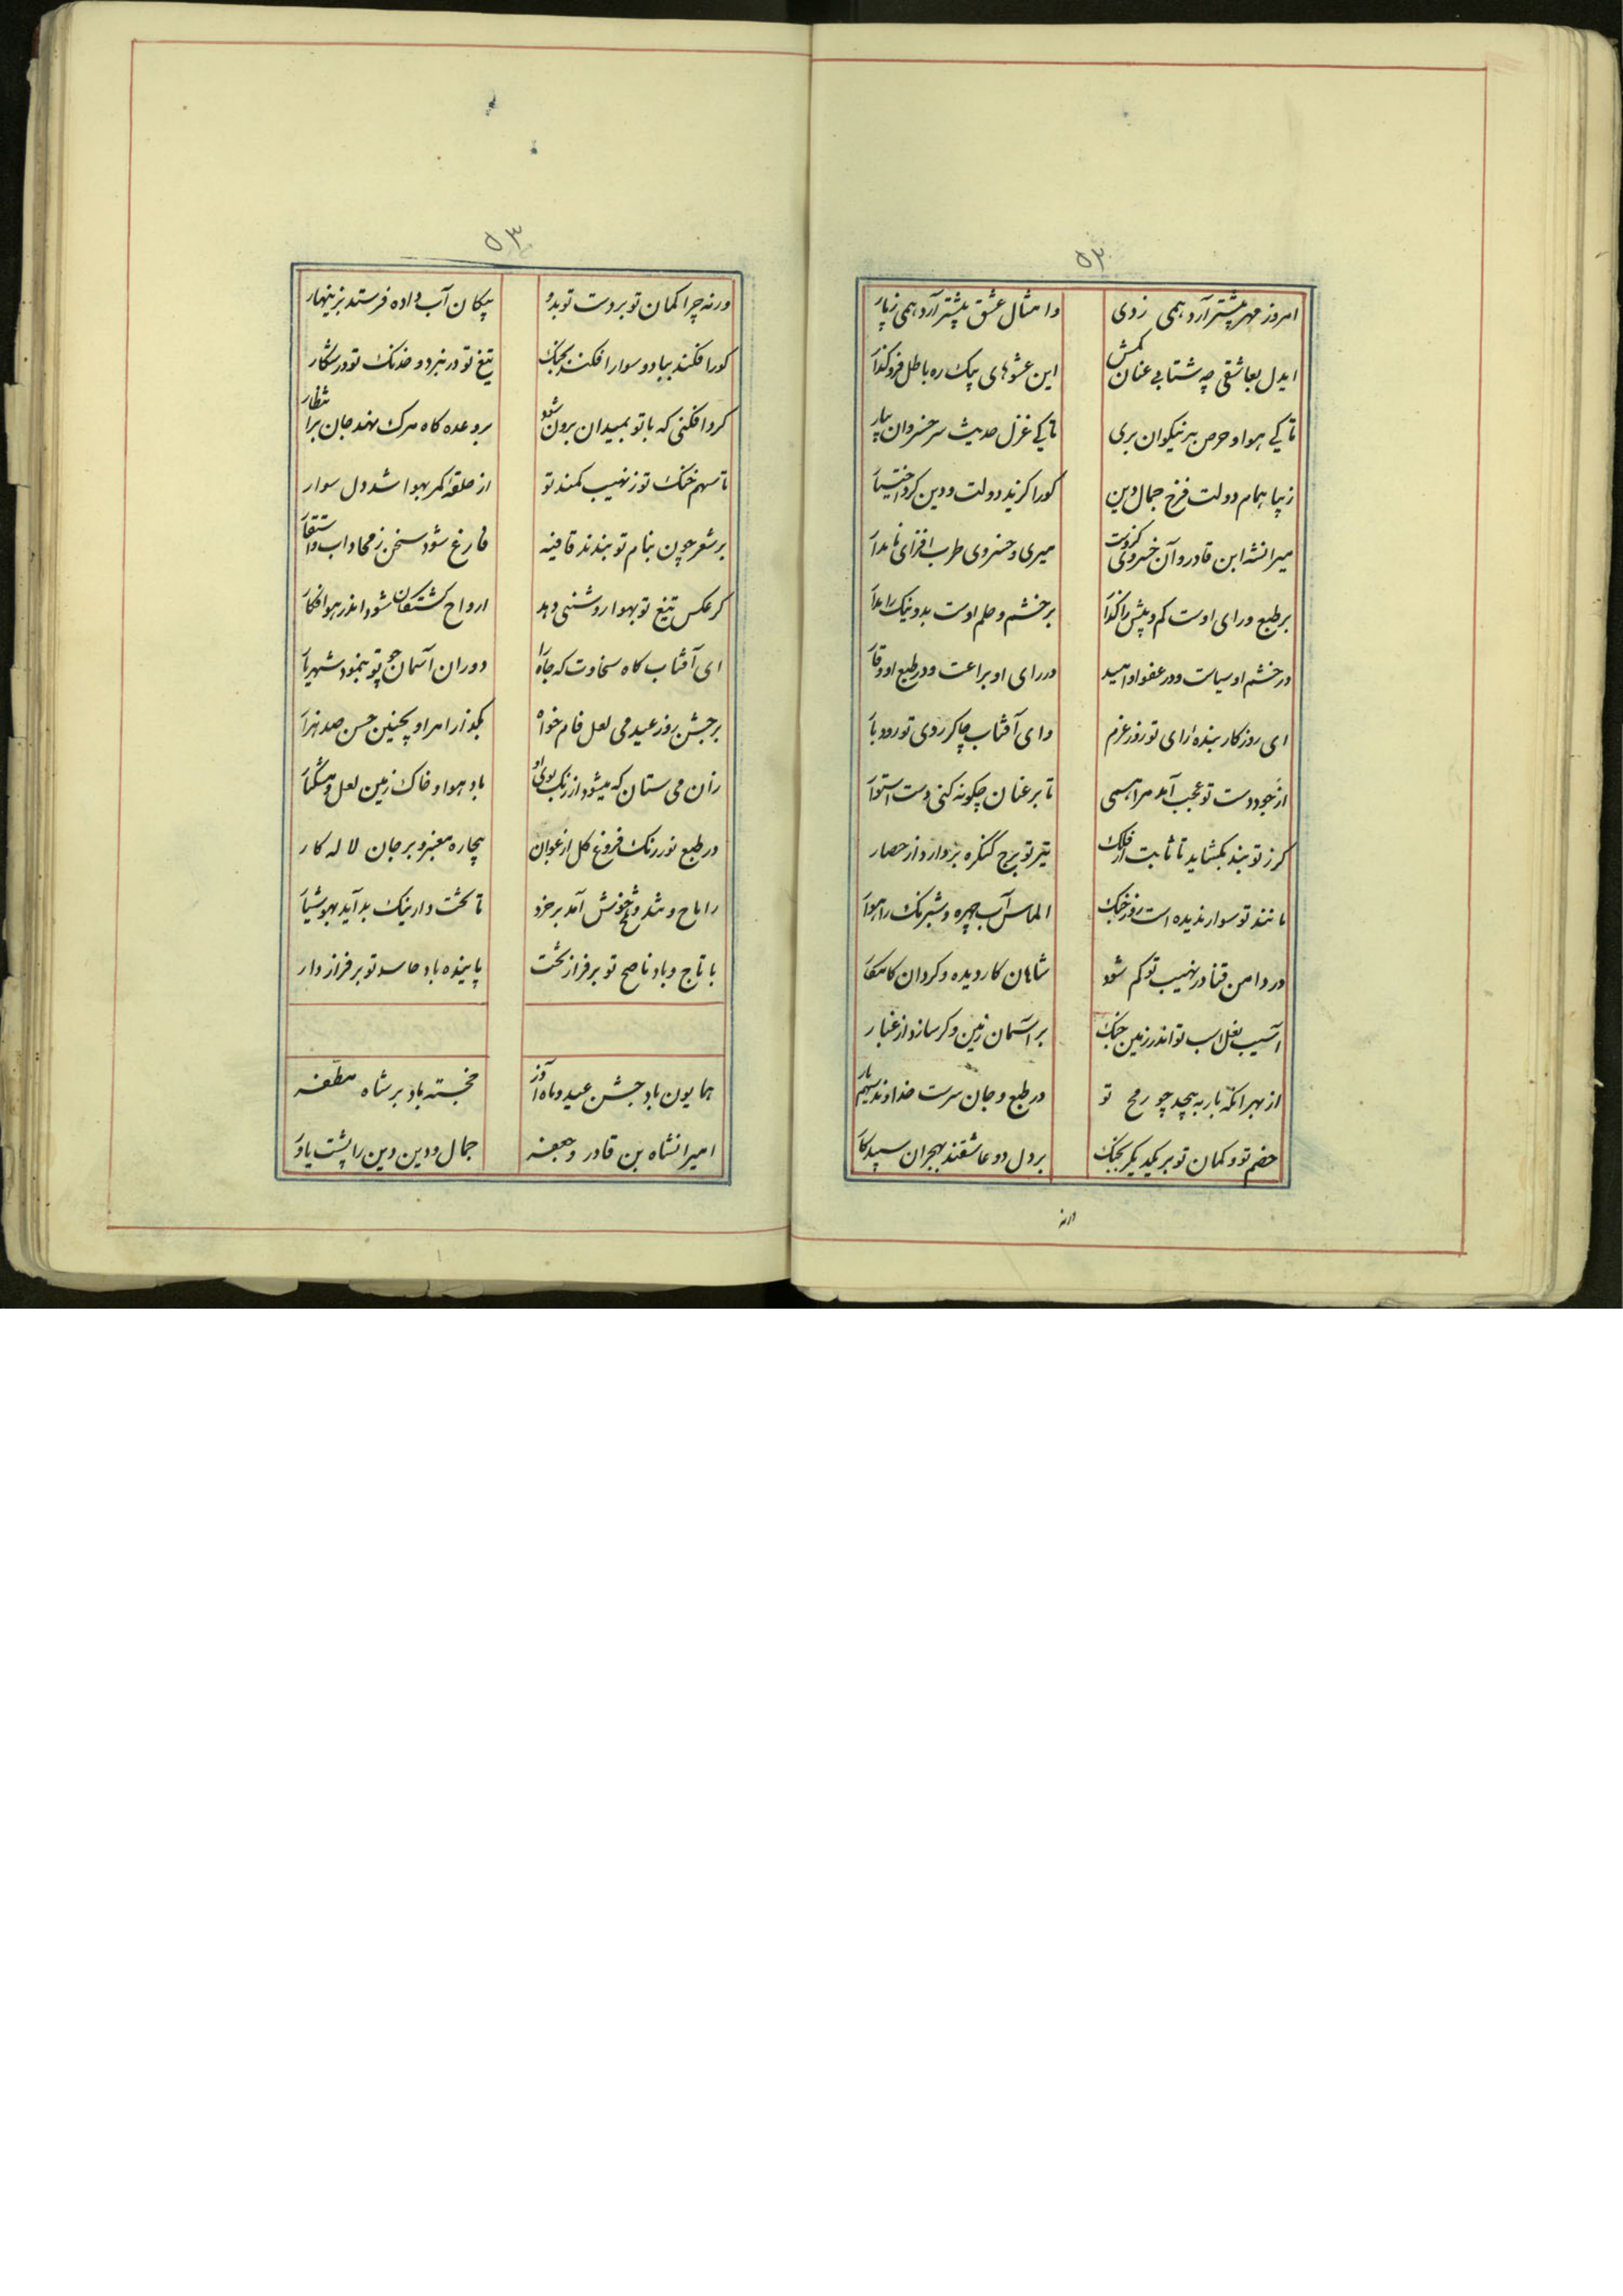 ۵۲
امروز مهر پیشتر آرد همی ز دی
وامثال عشق پیشتر آرد همی ز پار
ایدل بعاشقی چه شتابی عنان بکش
این عشوهای پیک ره باطل فروگذار
تا کی هوا و حرص بر نیکوان بری
تا کی غزل حدیث سر خسروان بیار
زیبا همام دولت فرخ جمال دین
کورا گزید دولت و دین کرد اختیار
میرانشه ابن قادر و آن خسروی کزوست
میری و خسروی طرب افزای نامدار
بر طبع و رای اوست کم و بیش را گذار
بر خشم و حلم اوست بد و نیک را مدار
در خشم او سیاست و در عفو او امید
در رای او براعت و در طبع او وقار
ای روزکار بنده رای تو روز عزم
وای آفتاب چاکر روی تو روز بار
از جود دست تو عجب آمد مرا همی
تا بر عنان چکونه کنی دست استوار
کرز تو بند بکشاید تا ثابت از فلک
تیر تو برج کنکره بردارد از حصار
مانند تو سوار ندیده است روز جنک
الماس آب چهره و شبرنک راهوار
در دامن قنا در نهیب تو کم شود
شاهان کار دیده و کردان کامکار
آسیب نعل اسب تو اندر زمین جنک
بر آسمان زمین دکر سازد از غبار
از بهر آنکه بار به پیچد چو رمح تو
در طبع و جان سرست خداوند سهم بار
خصم تو و کمان تو بر یکدیکر بجنک
بر دل دو عاشقند بهجران سپید کار
ورنه
۵۳
ورنه چرا کمان تو بر دست تو بدو
پیکان آب داده فرستد بزینهار
کور افکند بباد و سوار افکند بجنک
تیغ تو در نبرد و خدنک تو در شکار
کرد افکنی که با تو بمیدان برون شود
بر وعده کاه مرک نهد جان بر انتظار
تا سهم خنک تو ز نهیب کمند تو
از حلقه کمر بهوا شد دل سوار
بر شعر چون بنام تو بندند قافیه
فارغ شود سخن ز مجاز و استعار
کر عکس تیغ تو بهوا روشنی دهد
ارواح کشتکان شود اندر هوا فکار
ای آفتاب کاه سخاوت که جاه را
دوران آسمان چو تو ننمود شهریار
بر جشن روز عید می لعل فام خواه
بکذار امر او بچنین جسن صد هزار
زان می ستان که میشود از رنک بوی او
باد هوا و خاک زمین لعل و مشکبار
در طبع نور رنک فروغ کل ارغوان
بیچاره معنبر و بر جان لاله کار
راباح و شد و خونش آمد بر خرد
تا تخت دار نیک بد آید بهوشیار
با تاج و باد ناصح تو بر فراز تخت
پاینده باد حاسد تو بر فراز دار
همایون باد جشن عید و ماه آذر
خجسته باد بر شاه مظفر
امیرانشاه بن قادر و جعفر
جمال و دین دین را پشت یاور